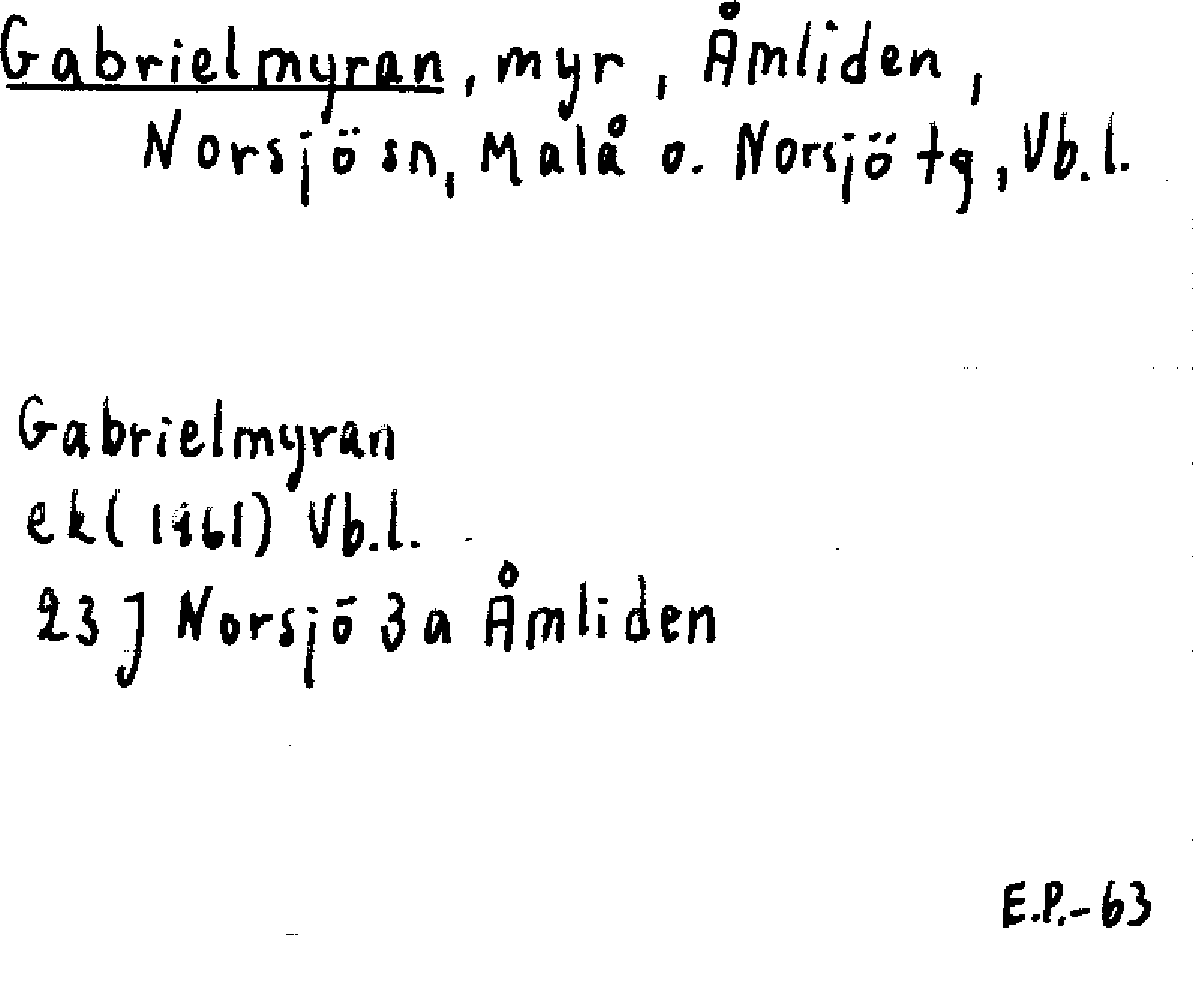 Gabrielmyran, myr, Åmliden,
Norsjö sn, Malå o. Norsjö tg, Vb.l.
Gabrielmyran
ek (1961) Vb.l.
23 J Norsjö 3a Åmliden
E.P.-63